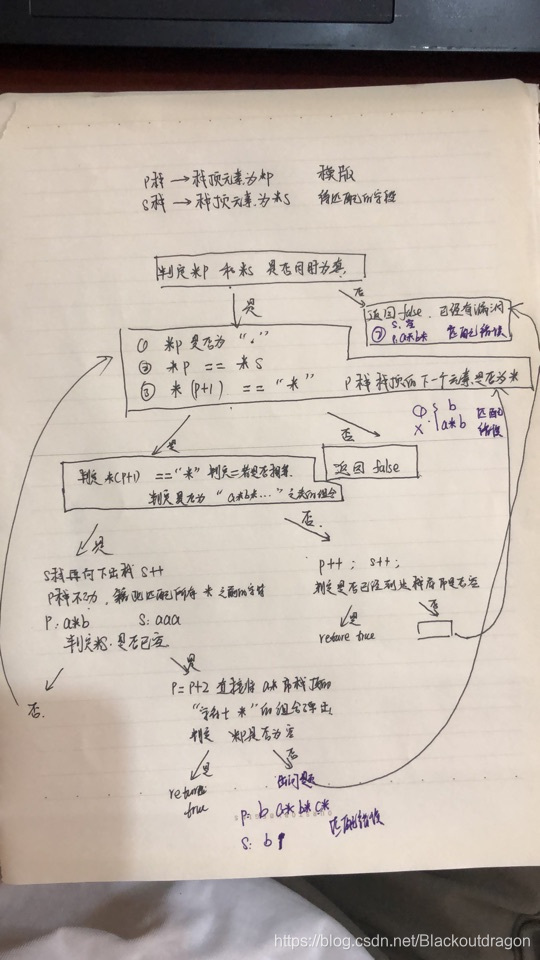 P栈 → 栈顶元素为*p 模版
S栈 → 栈顶元素为*S 待匹配的字段
判定 *p 和 *s 是否同时为真
是
否
返回 false, 已经有漏洞
② S: 空
P: a*b* 匹配错误
① *p 是否为 "."
② *p == *S
③ *(p+1) == "*" P栈栈顶的下一个元素是否为*
b
a*b
匹配
错误
是
否
返回 false
判定 *(p+1) == "*" 判定二者是否相等.
判定是否为 "a*b*..." 之类的组合
是
否.
S栈再向下出栈 S++
P栈不动, 匹配所有 * 之前的字符
P: a*b S: aaa
判定 是否已空
p++ ; s++ ;
判定是否已经到达栈底即是否空
是
否
return true
否.
是
P=P+2 直接将 a* 栈顶的
"字符+*" 的组合弹出,
判定 *p是否为空
是
否
return
true
出问题
P: b a* b* c*
S: b
匹配错误
https://blog.csdn.net/Blackoutdragon